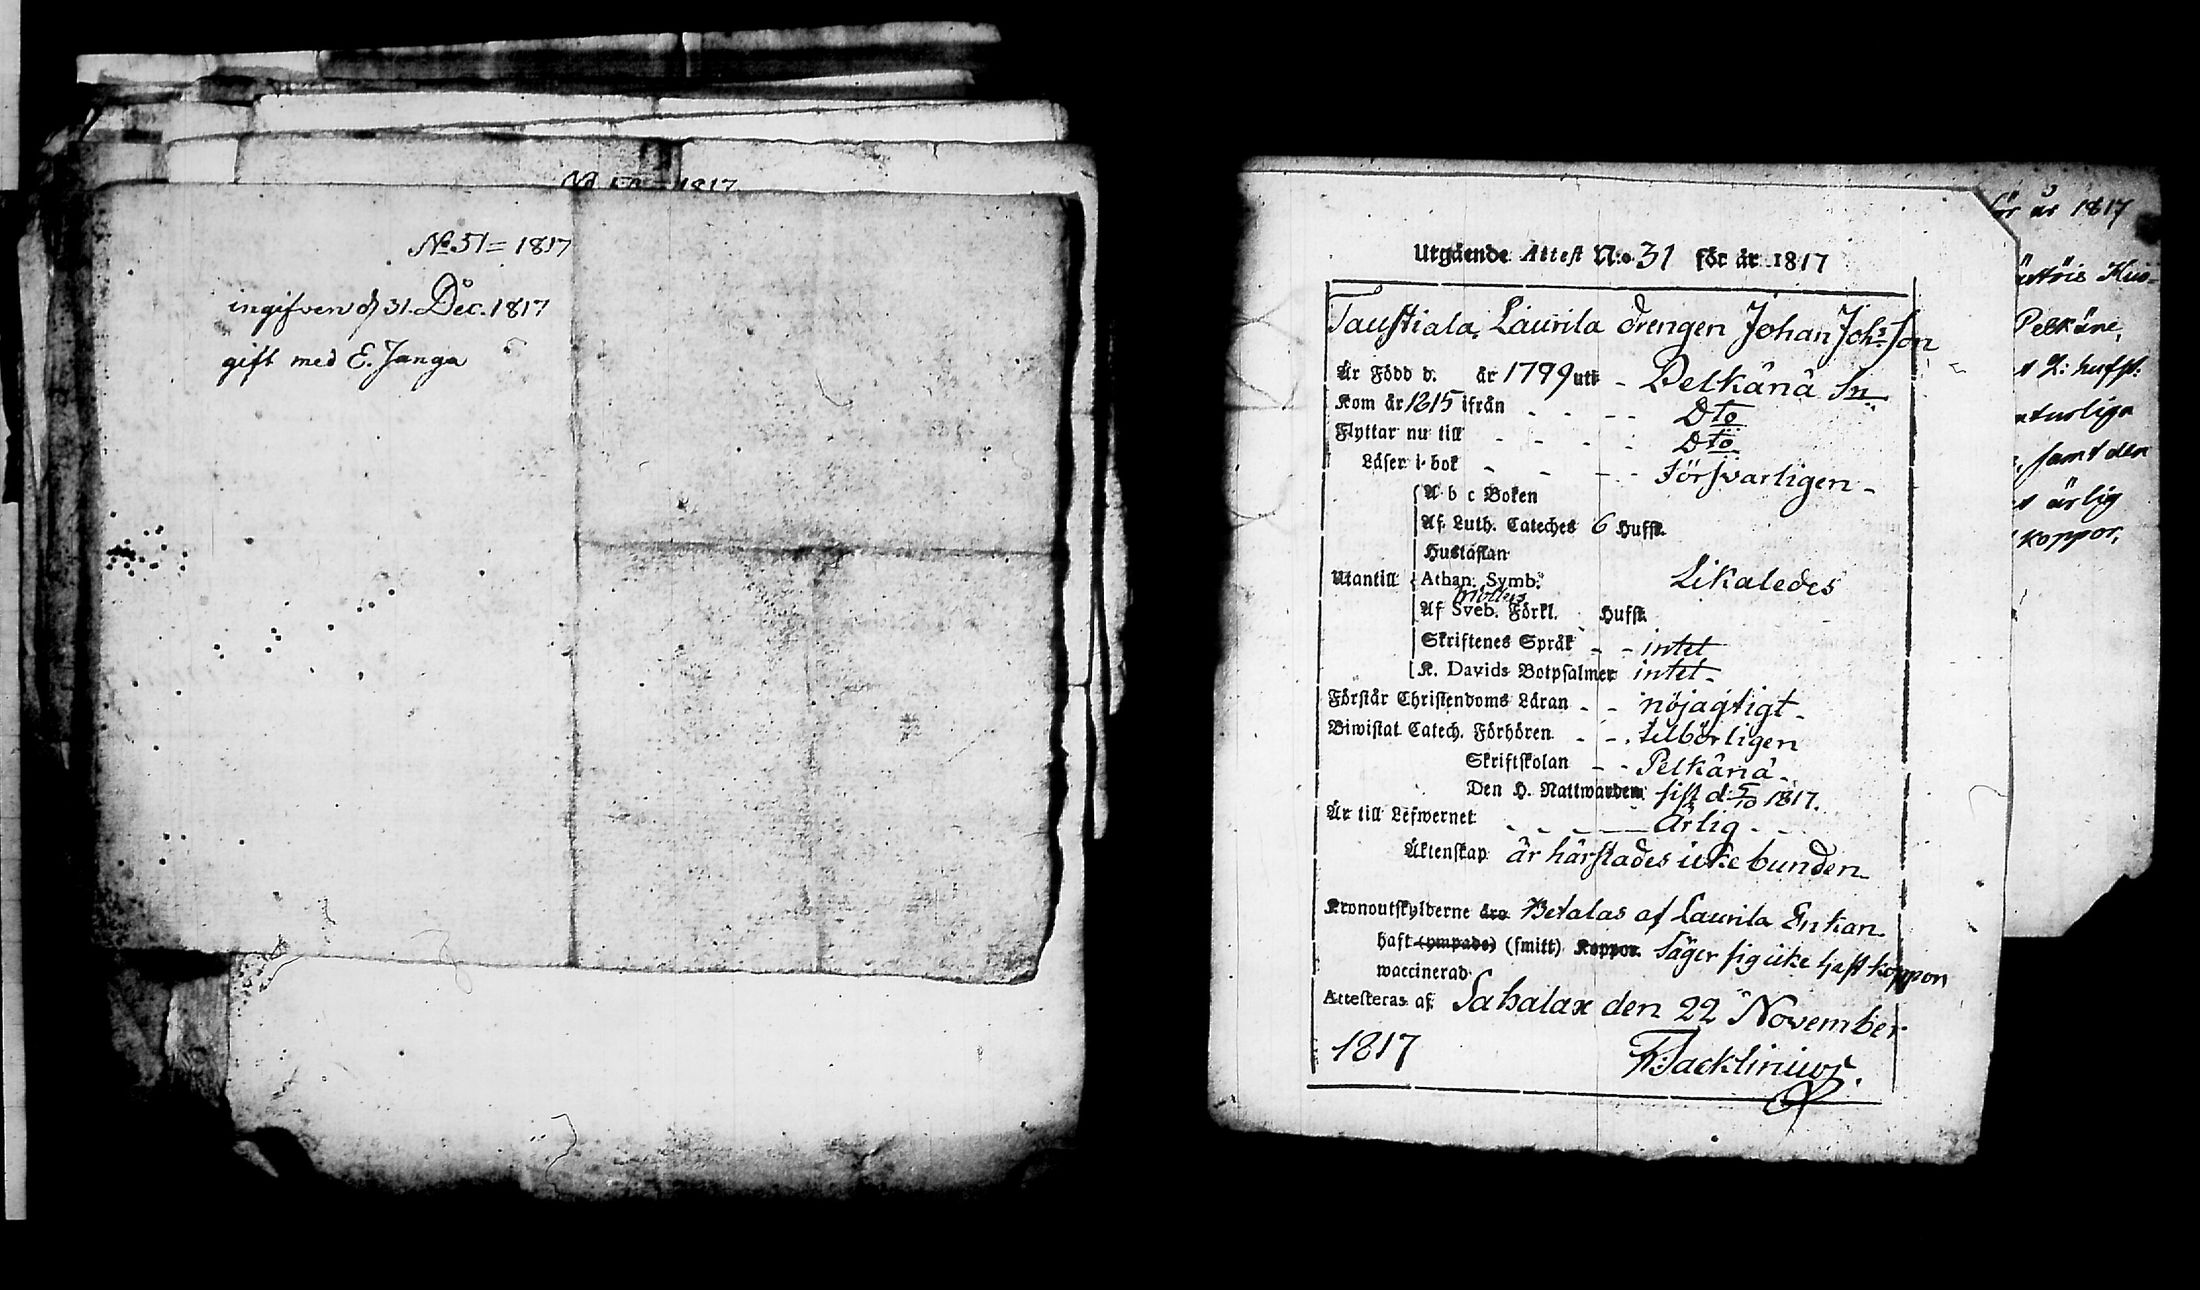 No 51 = 1817
ingifven d 31. Dec. 1817
gift med E. Janga
1817
Utgående Attest N:o 31 för år 1817
Taustiala, Laurila drengen Johan Johsson
Är Född d. år 1799 uti - Pelkänä Sn
Kom år 1815 ifrån - - - - Dto
Flyttar nu till - - - - Dto
Läser i bok - - - - Försvarligen -
A b c Boken
Af Luth. Cateches 6 Hufst.
Hustaflan
Utantill Athan. Symb. Likaledes
Af Sveb. Förkl. Hufst.
Skriftenes Språk - - intet
K. Davids Botpsalmer intet -
Förstår Christendoms Läran - - nöjagtigt -
Biwistat Catech. Förhören - - tillbörligen
Skriftskolan - - Pelkänä -
Den H. Nattwarden sist d. 5/10 1817.
Är till Lefwernet - - - - Ärlig - -
Äktenskap är härstädes icke bunden
Kronoutskylderne äro Betalas af Laurila Enkan
haft (ympade) (smitt) Koppor. Säger sig icke haft koppor
waccinerad
Attesteras af Sahalax den 22 November
1817
för år 1817
Pelkäne,
2: hufst:
samt den
ärlig
koppor,